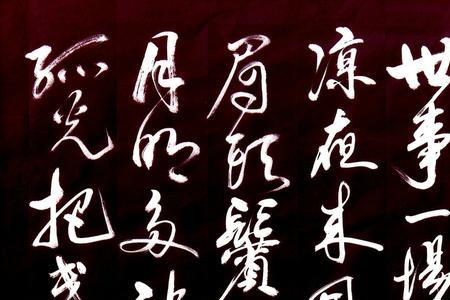 世事一場
涼夜来
眉頭鬢
月明多
孤光把